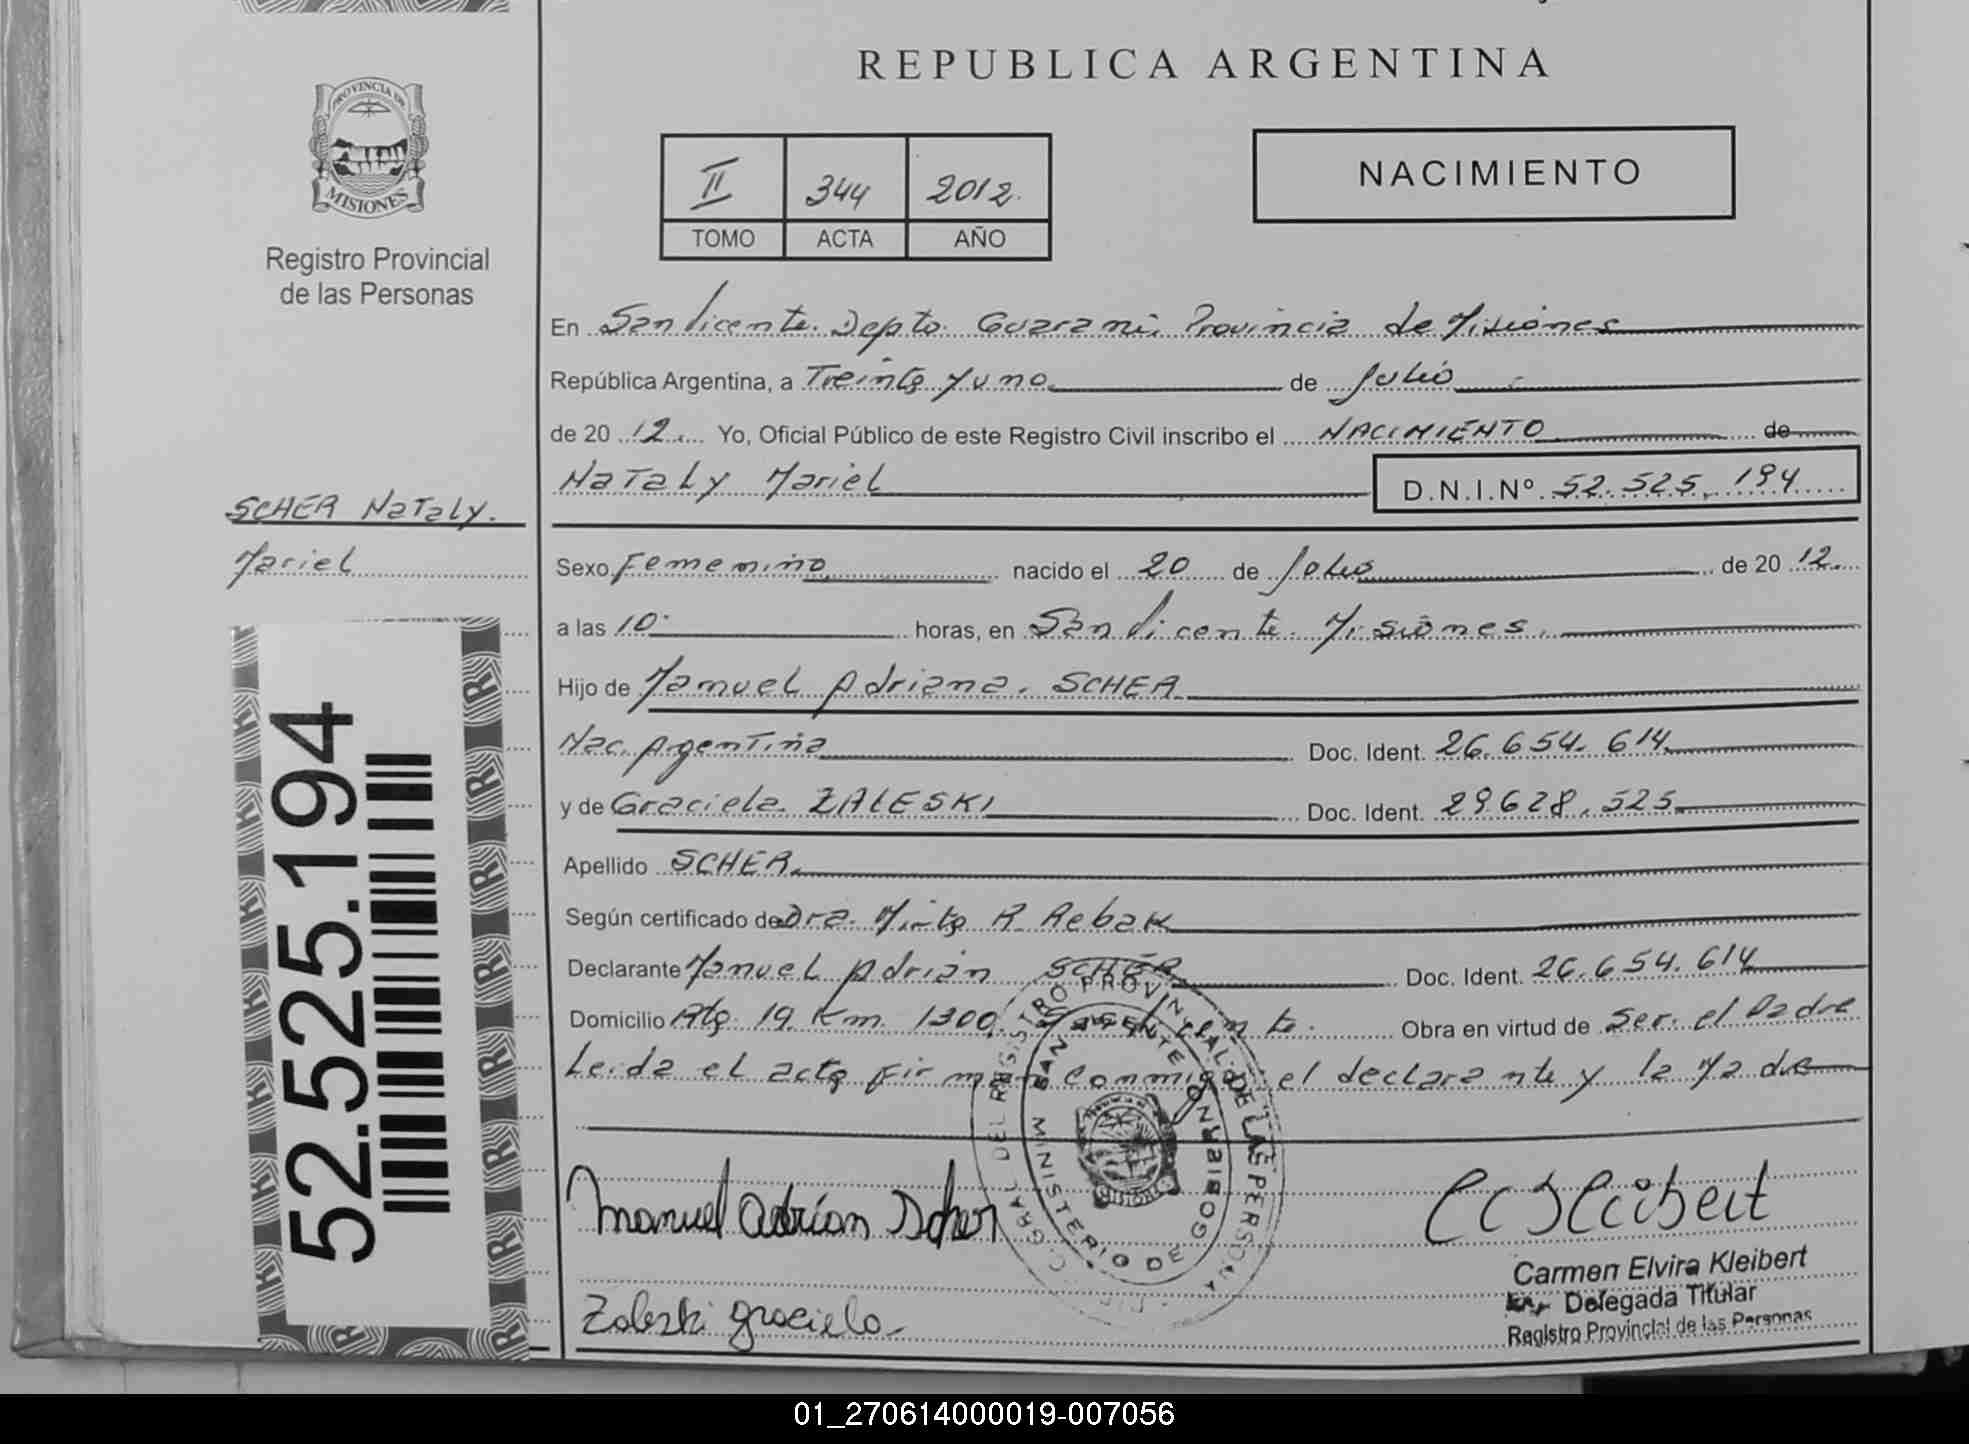 REPUBLICA ARGENTINA
PROVINCIA DE
MISIONES
Registro Provincial
de las Personas
II 344 2012.
TOMO ACTA AÑO
NACIMIENTO
En San Vicente. Depto. Guarani. Provincia de Misiones
República Argentina, a Treinta y uno de Julio
de 20 12. Yo, Oficial Público de este Registro Civil inscribo el NACIMIENTO de
Nataly Mariel D.N.I.Nº 52.525.194
SCHER Nataly.
Mariel
Sexo Femenino nacido el 20 de Julio de 20 12.
a las 10 horas, en San Vicente. Misiones.
Hijo de Manuel Adriana. SCHER
Nac. Argentina Doc. Ident. 26.654.614
y de Graciela ZALESKI Doc. Ident. 29.628.525
Apellido SCHER
Según certificado de Dra. Mirta R. Rebak
Declarante Manuel Adrián SCHER Doc. Ident. 26.654.614
Domicilio Rta. 19. Km. 1300. San Vicente. Obra en virtud de Ser. el Padre
Leida el acta firman conmigo el declarante y la Madre
52.525.194
DEL REGISTRO PROVINCIAL DE LAS PERSONAS
SAN VICENTE
MINISTERIO DE GOBIERNO
MISIONES
Manuel Adrian Scher
Zaleski graciela
Carmen Elvira Kleibert
Delegada Titular
Registro Provincial de las Personas
01_270614000019-007056